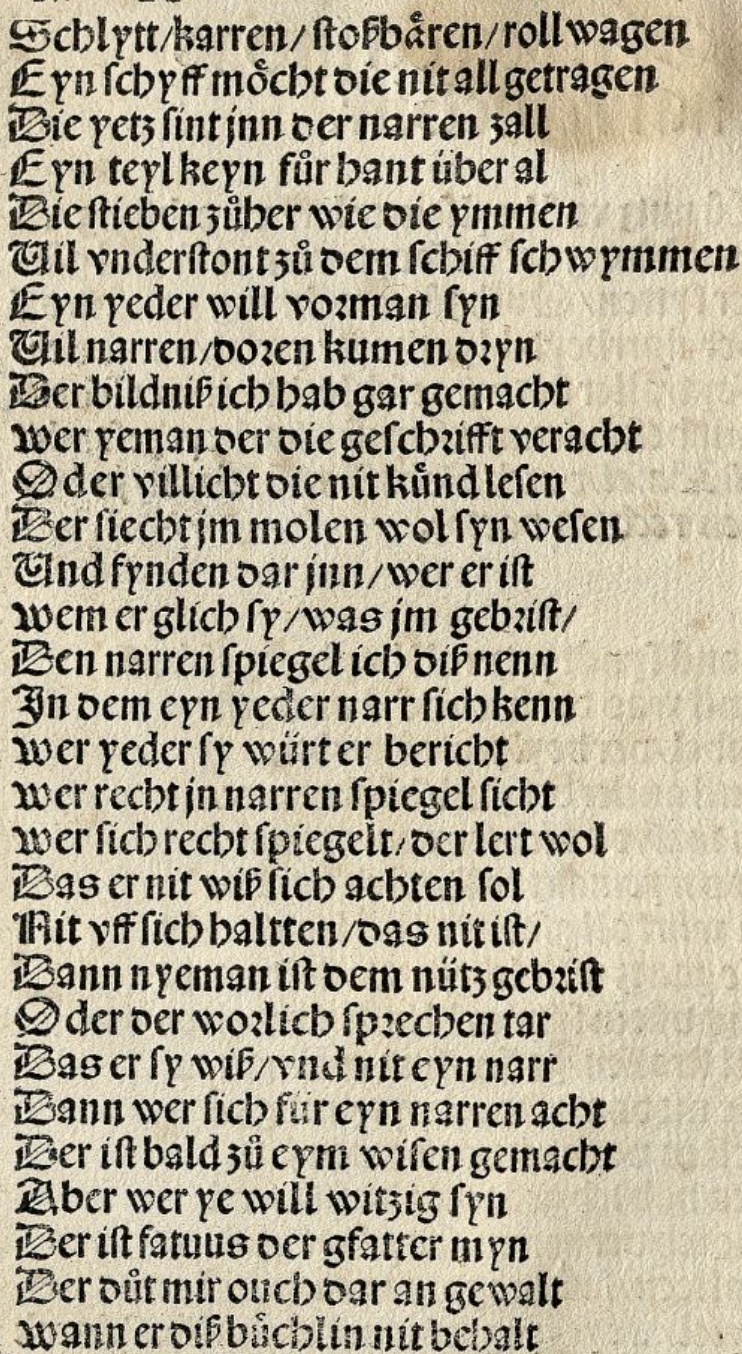 Schlytt/karren/stoßbåren/rollwagen
Eyn schyff mo̊cht die nit all getragen
Die yetz sint jnn der narren zall
Eyn teyl keyn fůr hant über al
Die stieben zůher wie die ymmen
Vil vnderstont zů dem schiff schwymmen
Eyn yeder will vorman syn
Vil narren/doren kumen dryn
Der bildniß ich hab gar gemacht
Wer yeman der die geschrifft veracht
Oder villicht die nit kůnd lesen
Der siecht jm molen wol syn wesen
Vnd fynden dar jnn/wer er ist
Wem er glich sy/was jm gebrist/
Den narren spiegel ich diß nenn
In dem eyn yeder narr sich kenn
Wer yeder sy würt er bericht
Wer recht jn narren spiegel sicht
Wer sich recht spiegelt/der lert wol
Das er nit wiß sich achten sol
Nit vff sich haltten/das nit ist/
Dann nyeman ist dem nütz gebrist
Oder der worlich sprechen tar
Das er sy wiß/vnd nit eyn narr
Dann wer sich für eyn narren acht
Der ist bald zů eym wisen gemacht
Aber wer ye will witzig syn
Der ist fatuus der gfatter myn
Der důt mir ouch dar an gewalt
Wann er diß bůchlin nit behalt